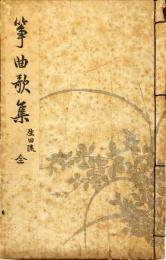 箏曲歌集
生田流
全